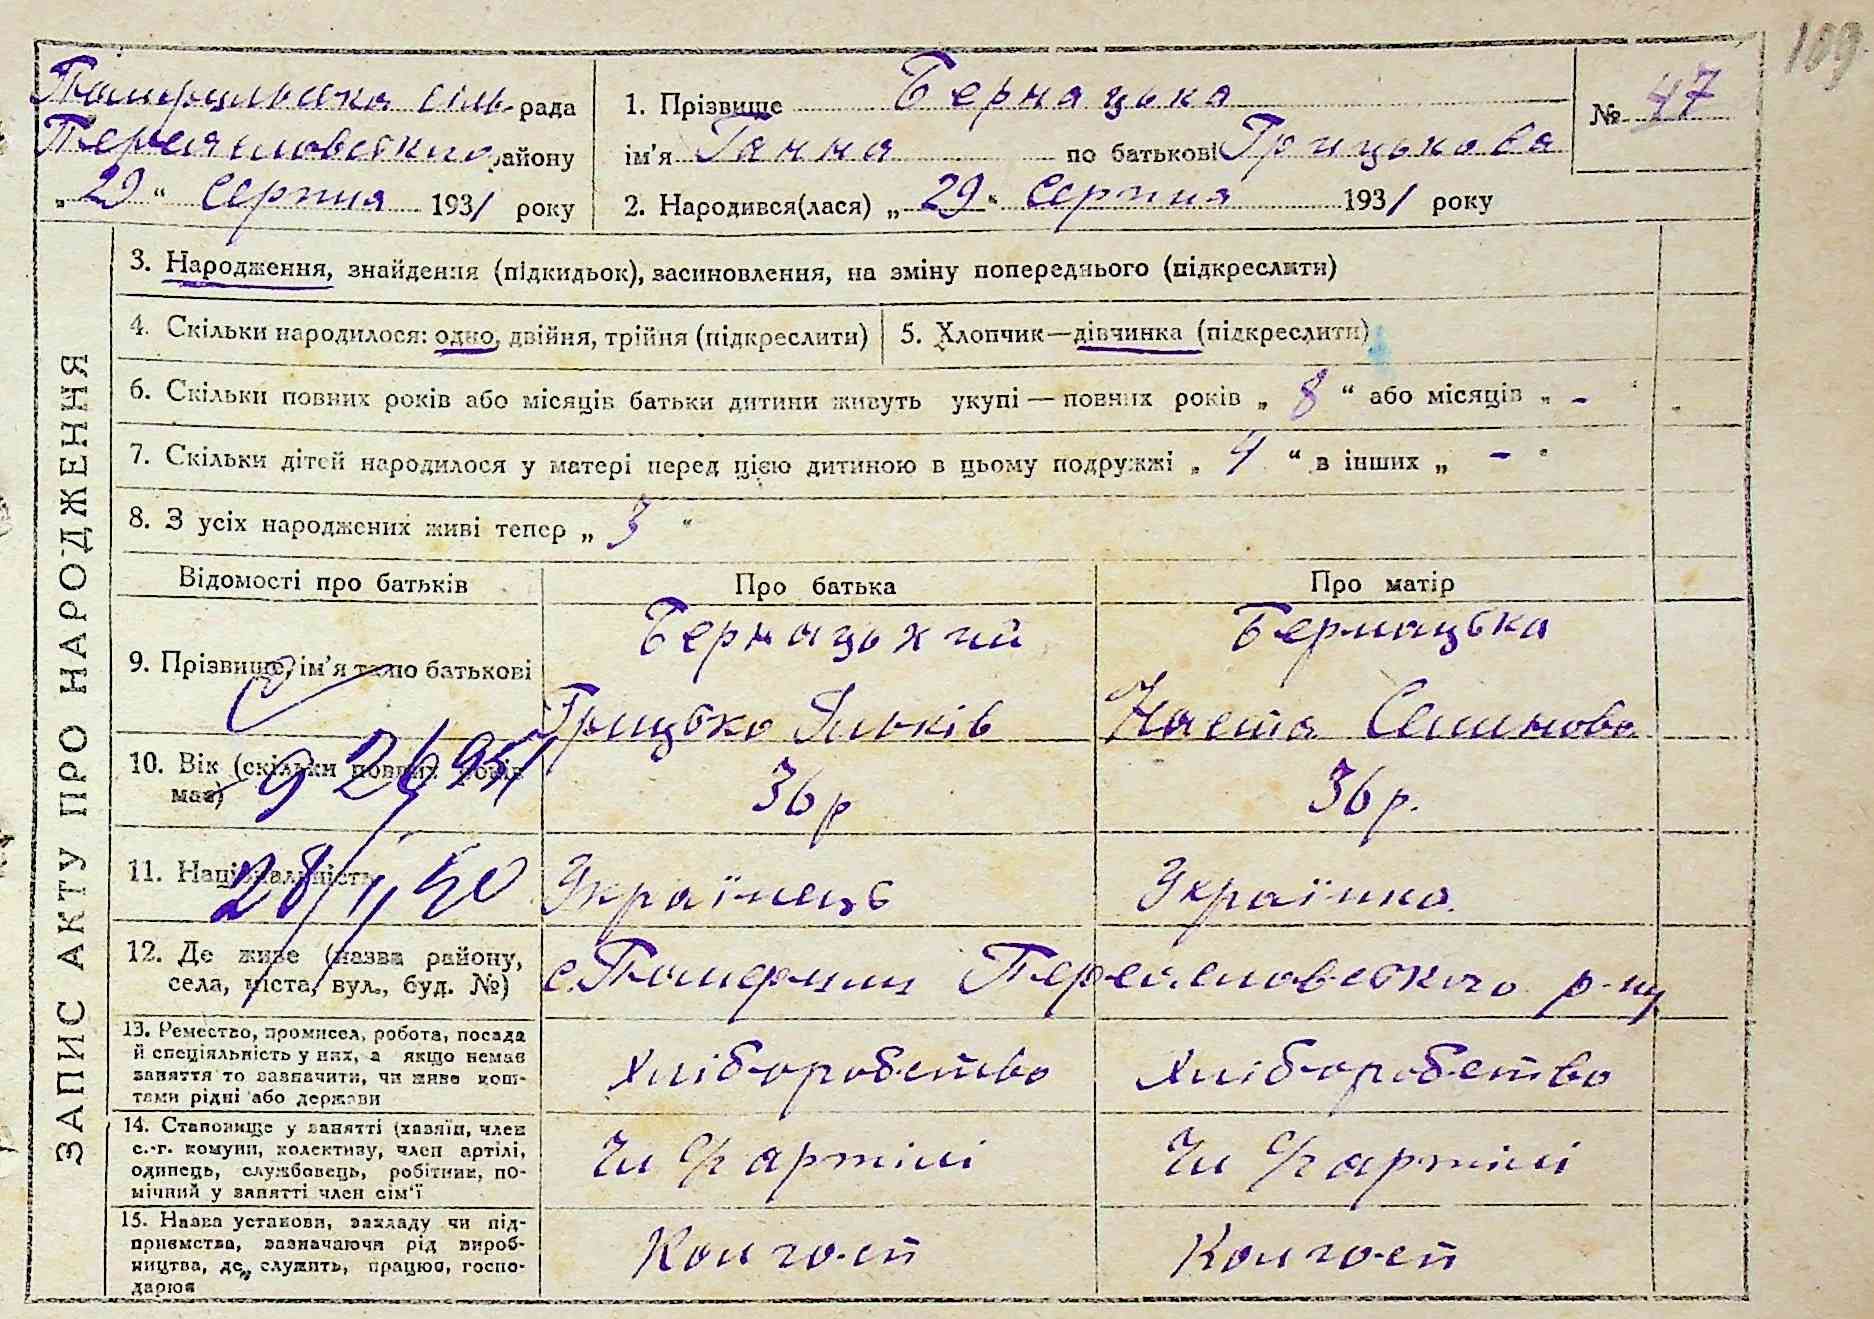 109
сіль-рада
Переяславського району
„29“ Серпня 1931 року
1. Прізвище Бернацька
ім'я Ганна по батькові Грицькова
2. Народився(лася) „29“ Серпня 1931 року
№ 47
ЗАПИС АКТУ ПРО НАРОДЖЕННЯ
3. Народження, знайдення (підкидьок), засиновлення, на зміну попереднього (підкреслити)
4. Скільки народилося: одно, двійня, трійня (підкреслити)
5. Хлопчик—дівчинка (підкреслити)
6. Скільки повних років або місяців батьки дитини живуть укупі — повних років „8“ або місяців „-“
7. Скільки дітей народилося у матері перед цією дитиною в цьому подружжі „4“ в інших „-“
8. З усіх народжених живі тепер „3“
Відомості про батьків
Про батька
Про матір
9. Прізвище, ім'я та по батькові
Бернацький
Грицько Ільків
Бернацька
Наста Семенова
10. Вік (скільки повних років
має)
36 р
36 р.
11. Національність
28/I 40
Українець
Українка
12. Де живе (назва району,
села, міста, вул., буд. №)
с. Помирки Переяславського р-ну
13. Ремество, промисел, робота, посада
й спеціяльність у них, а якщо немає
заняття то зазначити, чи живе кош-
тами рідні або держави
Хліборобство
Хліборобство
14. Становище у занятті (хазяїн, член
с.-г. комуни, колективу, член артілі,
одинець, службовець, робітник, по-
мічний у занятті член сім'ї
Чл с/г артілі
Чл с/г артілі
15. Назва установи, закладу чи під-
приємства, зазначаючи рід вироб-
ництва, де служить, працює, госпо-
дарює
Колгосп
Колгосп